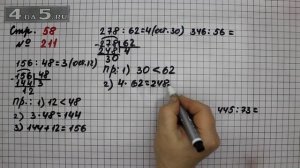 4a5.com
Стр. 58
№ 211
156 : 48 = 3 (ост. 12)
-156 | 48
144 | 3
12
Пр.: 1) 12 < 48
2) 3 · 48 = 144
3) 144 + 12 = 156
278 : 62 = 4 (ост. 30)
-278 | 62
248 | 4
30
Пр: 1) 30 < 62
2) 4 · 62 = 248
346 : 56 =
445 : 73 =